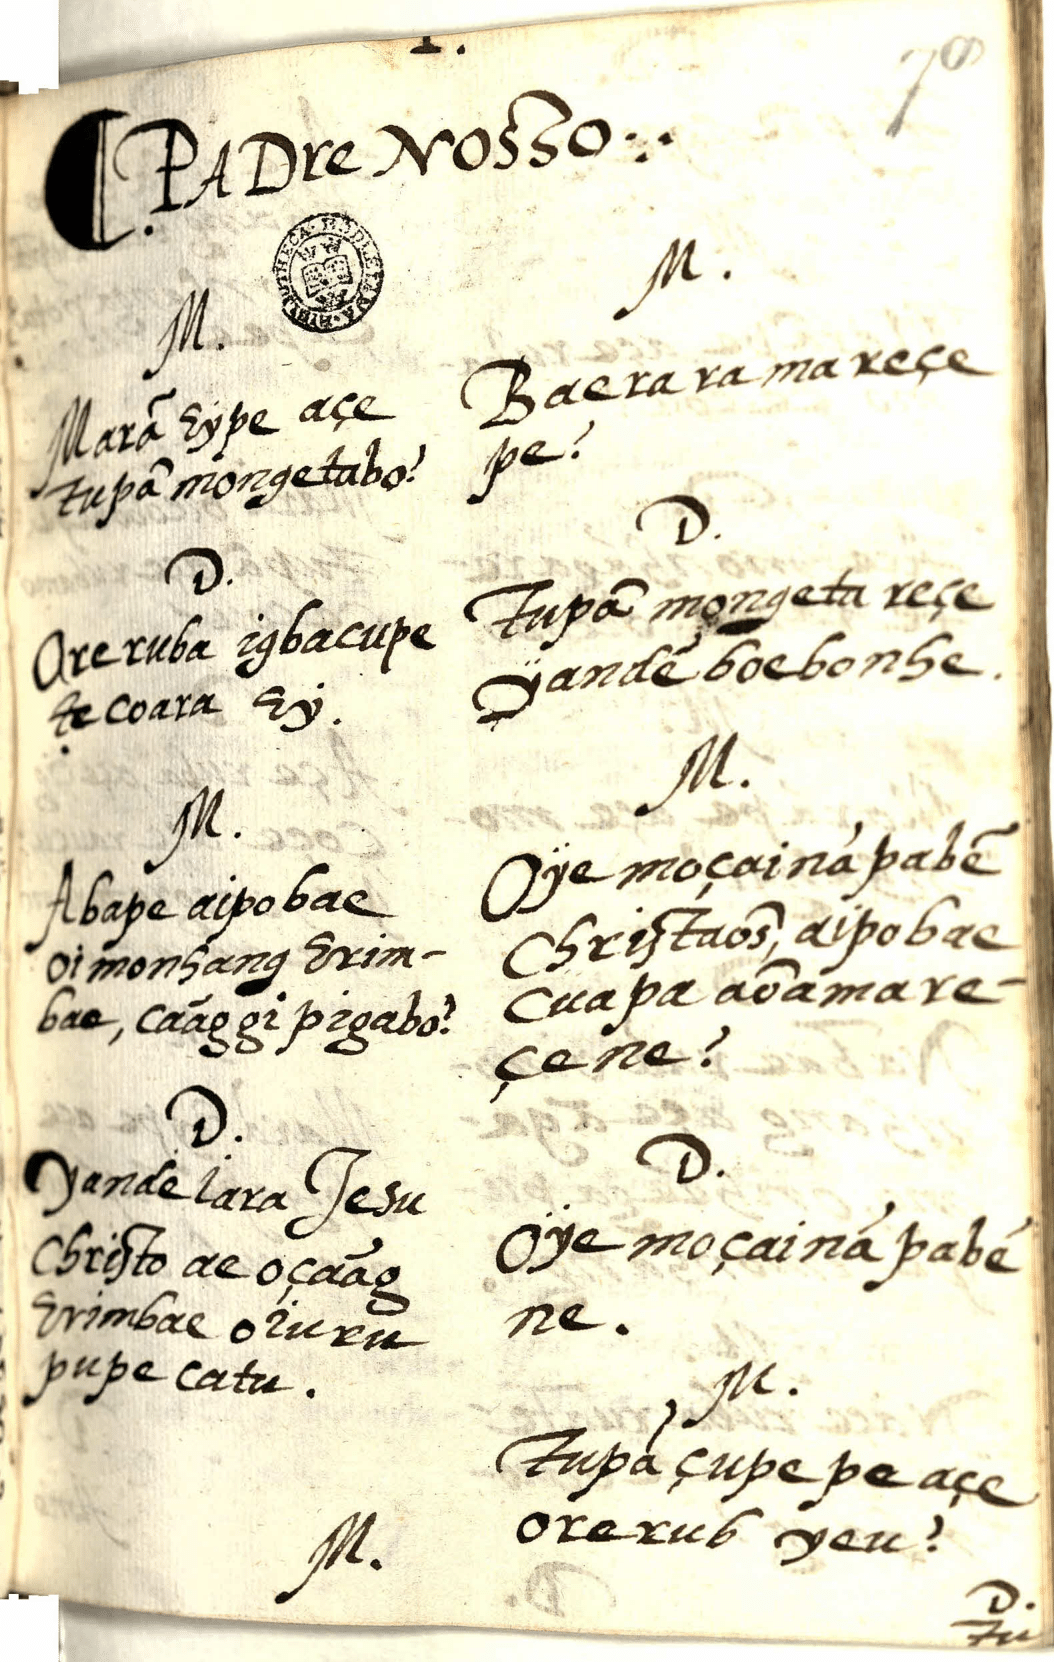 I.
70
PADre Nosso
M.
Marã Eype açe
tupã mongetabo?
D.
Ore ruba igbacupe
tecoara Ey.
M.
Abape aipobae
oimonhang Erim-
bae, caãggipigabo?
D.
Yandé iara Jesu
Christo ae oçaãg
Erimbae oiuru
pupe catu.
M.
M.
Baerarama reçe
pe?
D.
Tupã mongeta reçe
ÿandé boebonhe.
M.
Oÿe moçainá pabẽ
Christaõs, aipobae
cuapa aõamare-
çene?
D.
Oÿe moçainá pabé
ne.
M.
Tupá çupe pe açe
orerub yeu?
D.
Tu